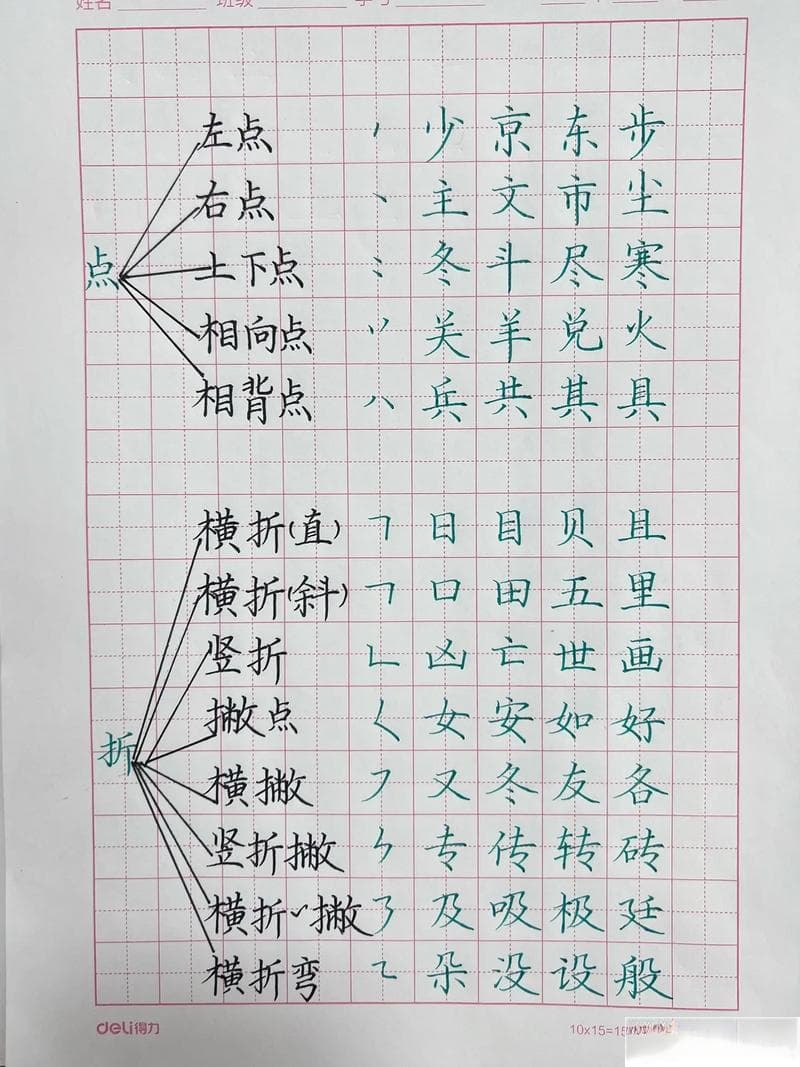 姓名 班级 学号
左点 丿 少 京 东 步
右点 丶 主 文 市 尘
点 上下点 冬 斗 尽 寒
相向点 丷 关 羊 兑 火
相背点 八 兵 共 其 具
横折(直) ㇕ 日 目 贝 且
横折(斜) ㇕ 口 田 五 里
竖折 ㇗ 凶 亡 世 画
撇点 ㇛ 女 安 如 好
折 横撇 ㇇ 又 冬 友 各
竖折撇 ㇞ 专 传 转 砖
横折折撇 ㇋ 及 吸 极 廷
横折弯 ㇍ 朵 没 设 般
deli得力